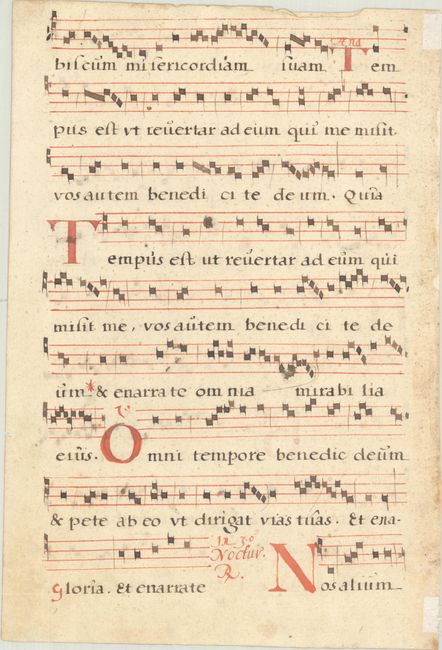 biscum misericordiam suam Ana Tem
pus est vt reuertar ad eum qui me misit
vos autem benedicite deum. Quia
Tempus est ut reuertar ad eum qui
misit me, vos autem benedicite de
um * & enarrate omnia mirabilia
eius. V Omni tempore benedic deum
& pete ab eo vt dirigat vias tuas. Et ena-
Gloria. Et enarrate
In 3o
Noctur.
R. Nos alium